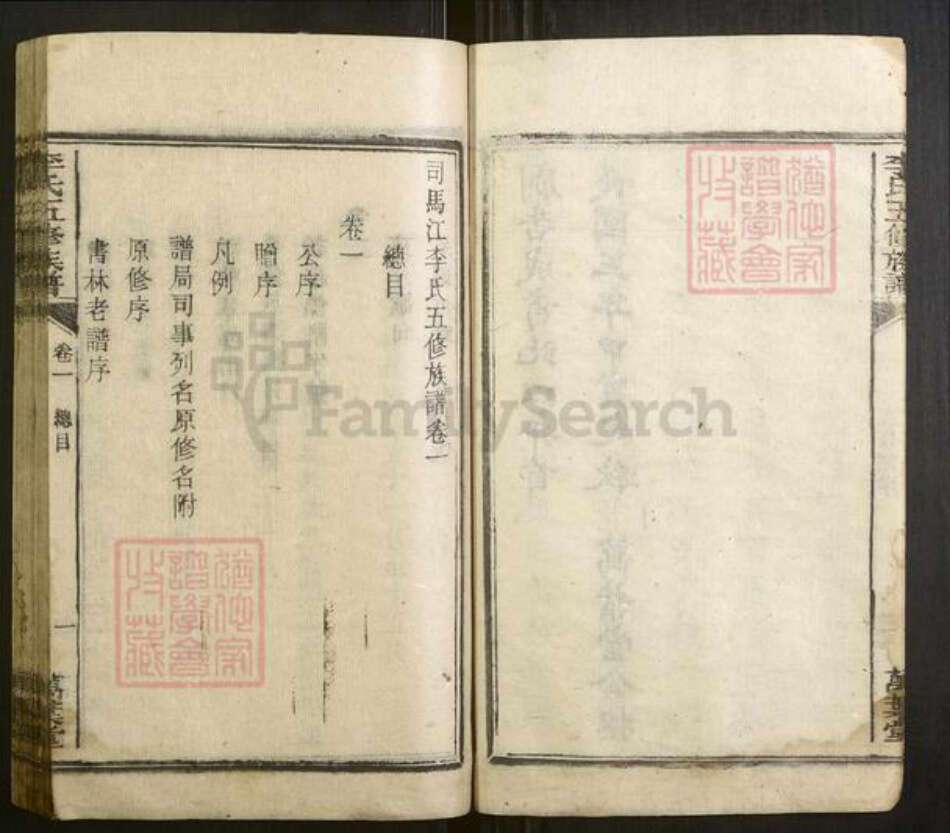 李氏五修族譜
萬葉堂
司馬江李氏五修族譜卷一
總目
卷一
公序
贈序
凡例
譜局司事列名原修名附
原修序
書林老譜序
李氏五修族譜
卷一
總目
一
萬葉堂
猶他家
譜學會
收藏
猶他家
譜學會
收藏
FamilySearch